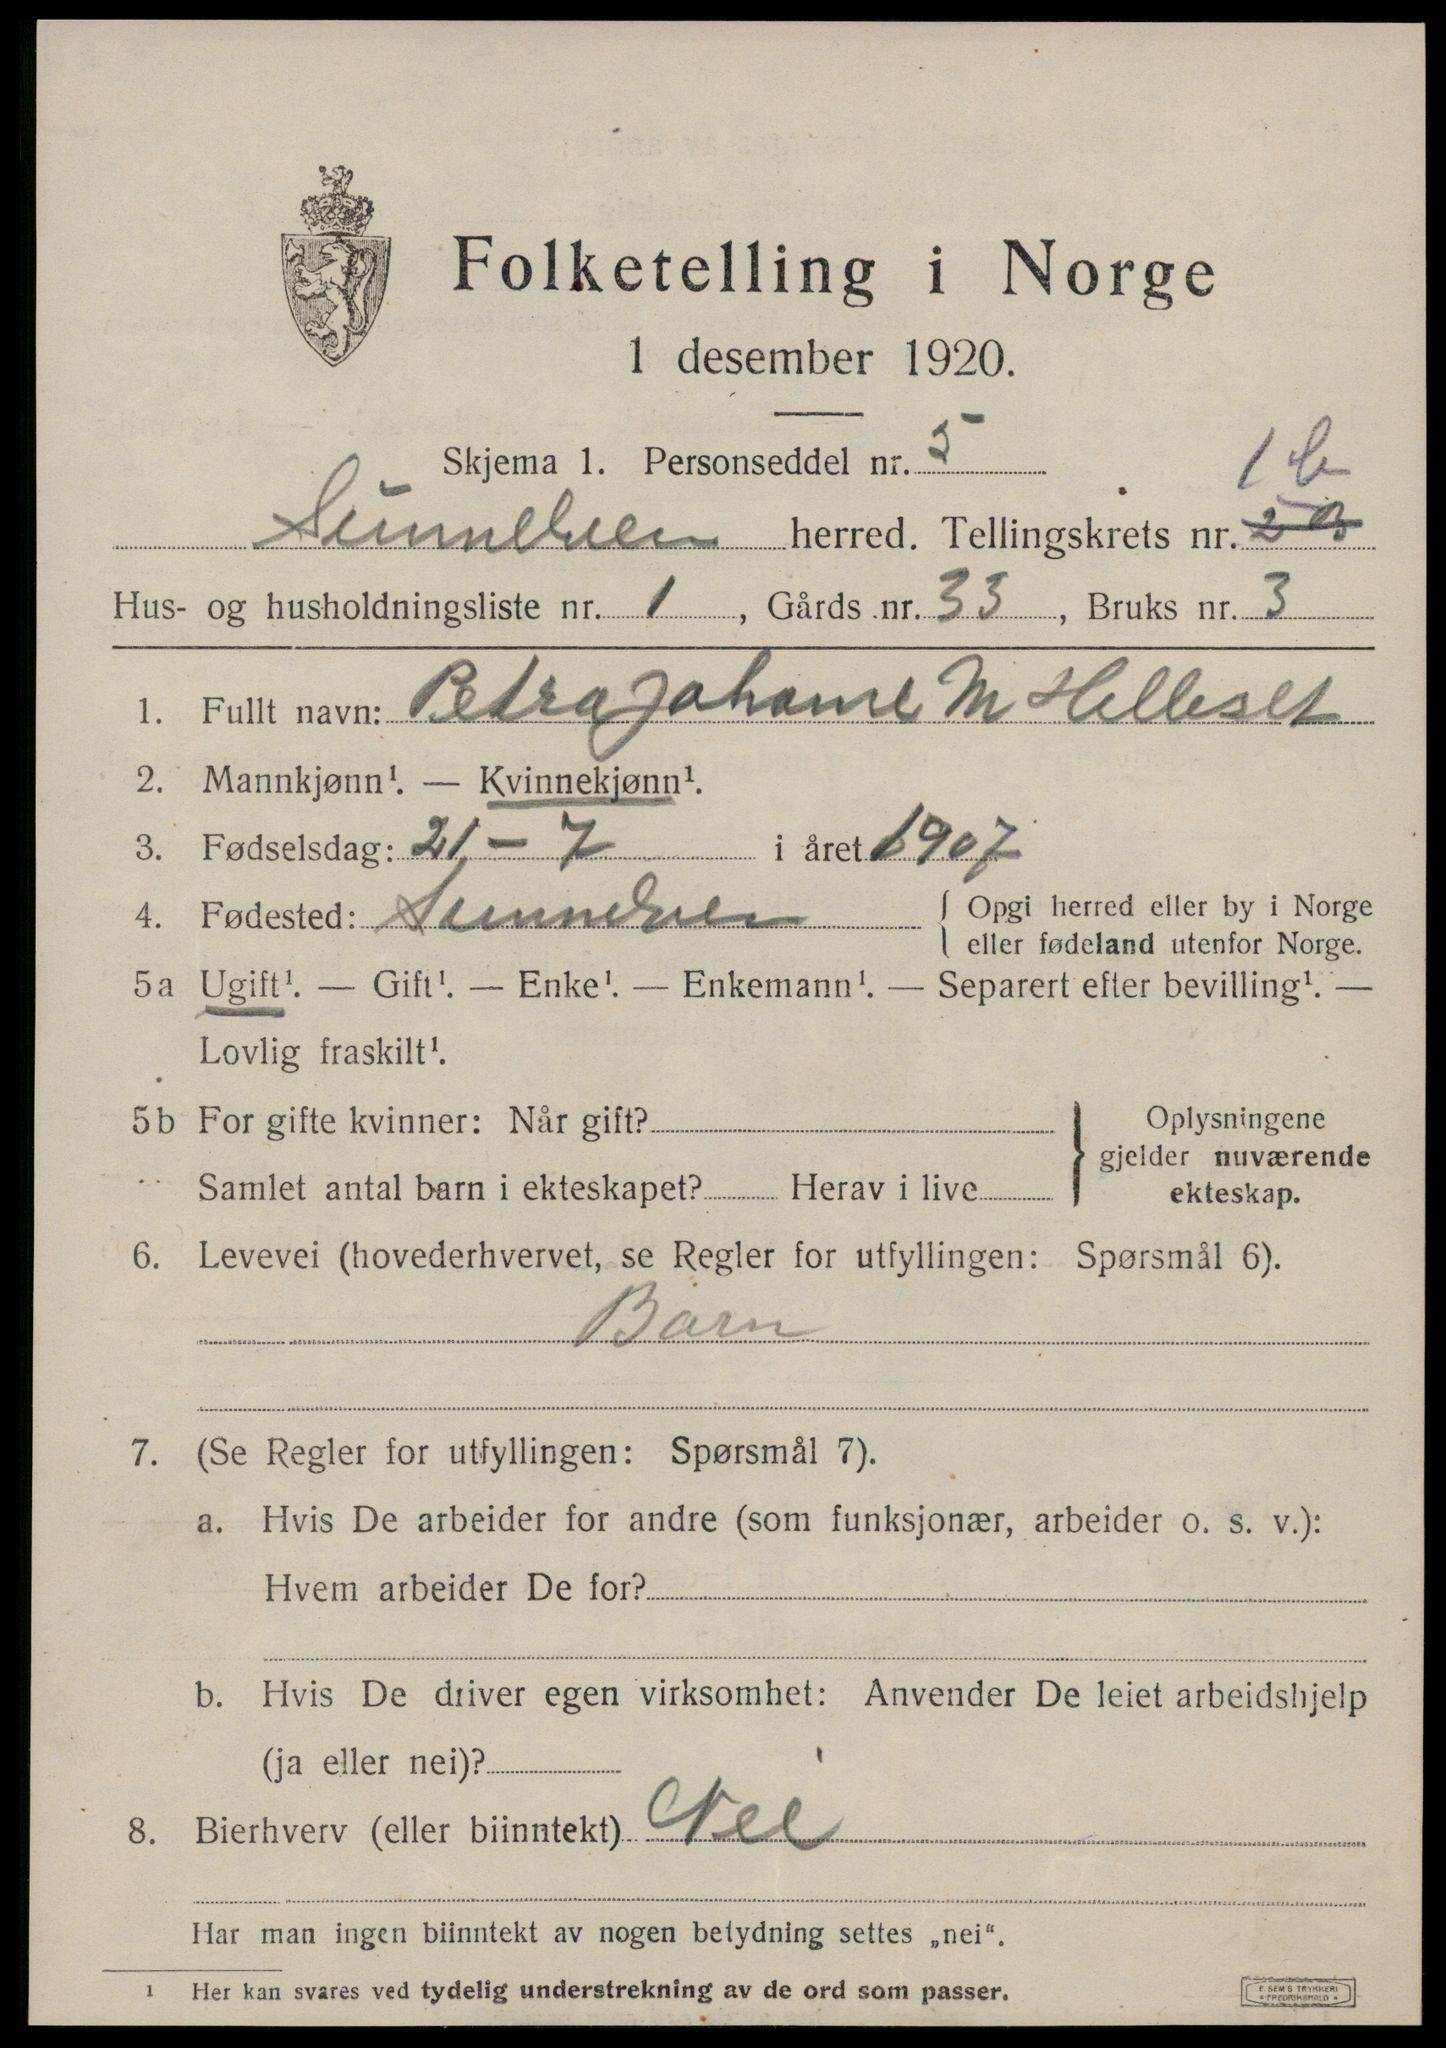 Folketelling i Norge
1 desember 1920.
Skjema 1. Personseddel nr. 5
1 b
Sunnelven herred. Tellingskrets nr.
Hus- og husholdningsliste nr. 1, Gårds nr. 33, Bruks nr. 3
1. Fullt navn: Petra Johanne M Helleset
2. Mannkjønn¹. — Kvinnekjønn¹.
3. Fødselsdag: 21 - 7 i året 1907
4. Fødested: Sunnelven { Opgi herred eller by i Norge
eller fødeland utenfor Norge.
5a Ugift¹. — Gift¹. — Enke¹. — Enkemann¹. — Separert efter bevilling¹. —
Lovlig fraskilt¹.
5b For gifte kvinner: Når gift? } Oplysningene
gjelder nuværende
Samlet antal barn i ekteskapet? Herav i live ekteskap.
6. Levevei (hovederhvervet, se Regler for utfyllingen: Spørsmål 6).
Barn
7. (Se Regler for utfyllingen: Spørsmål 7).
a. Hvis De arbeider for andre (som funksjonær, arbeider o. s. v.):
Hvem arbeider De for?
b. Hvis De driver egen virksomhet: Anvender De leiet arbeidshjelp
(ja eller nei)?
8. Bierhverv (eller biinntekt) Nei
Har man ingen biinntekt av nogen betydning settes „nei“.
1 Her kan svares ved tydelig understrekning av de ord som passer.
F. SEM'S TRYKKERI
• FREDRIKSHALD •